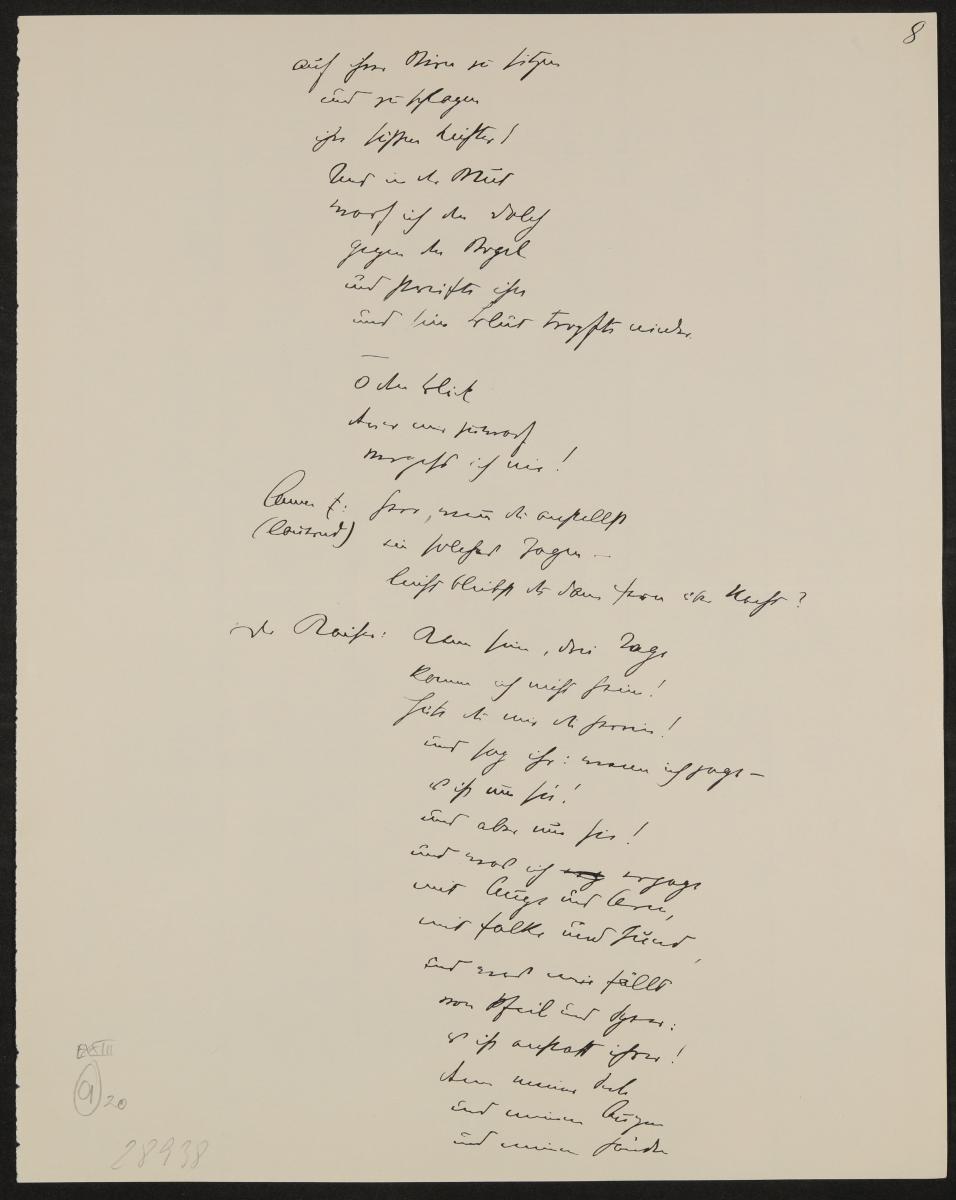 8
auf ihrer Stirn zu sitzen
und zu schlagen
ihre süssen Lichter!
Und in der Wut
warf ich den Dolch
gegen den Vogel
und streifte ihn
und sein Blut tropfte nieder.
—
O den Blick
den er mir zuwarf
vergess ich nie!
Amme I:
(lauernd)
Herr, wenn du anstellst
ein solches Jagen –
leicht bleibst du dann fern über Nacht?
der Kaiser:
Kann sein, drei Tage
komm ich nicht heim!
Hüte du mir die Herrin!
und sag ihr: wenn ich jage –
es ist um sie!
und aber um sie!
und was ich erjage
mit Auge und Arm,
mit Falke und Hund,
und was mir fällt
von Pfeil und Speer:
es ist anstatt ihrer!
Denn meiner Seele
und meinen Augen
und meinen Händen
XXIII
9
20
28938